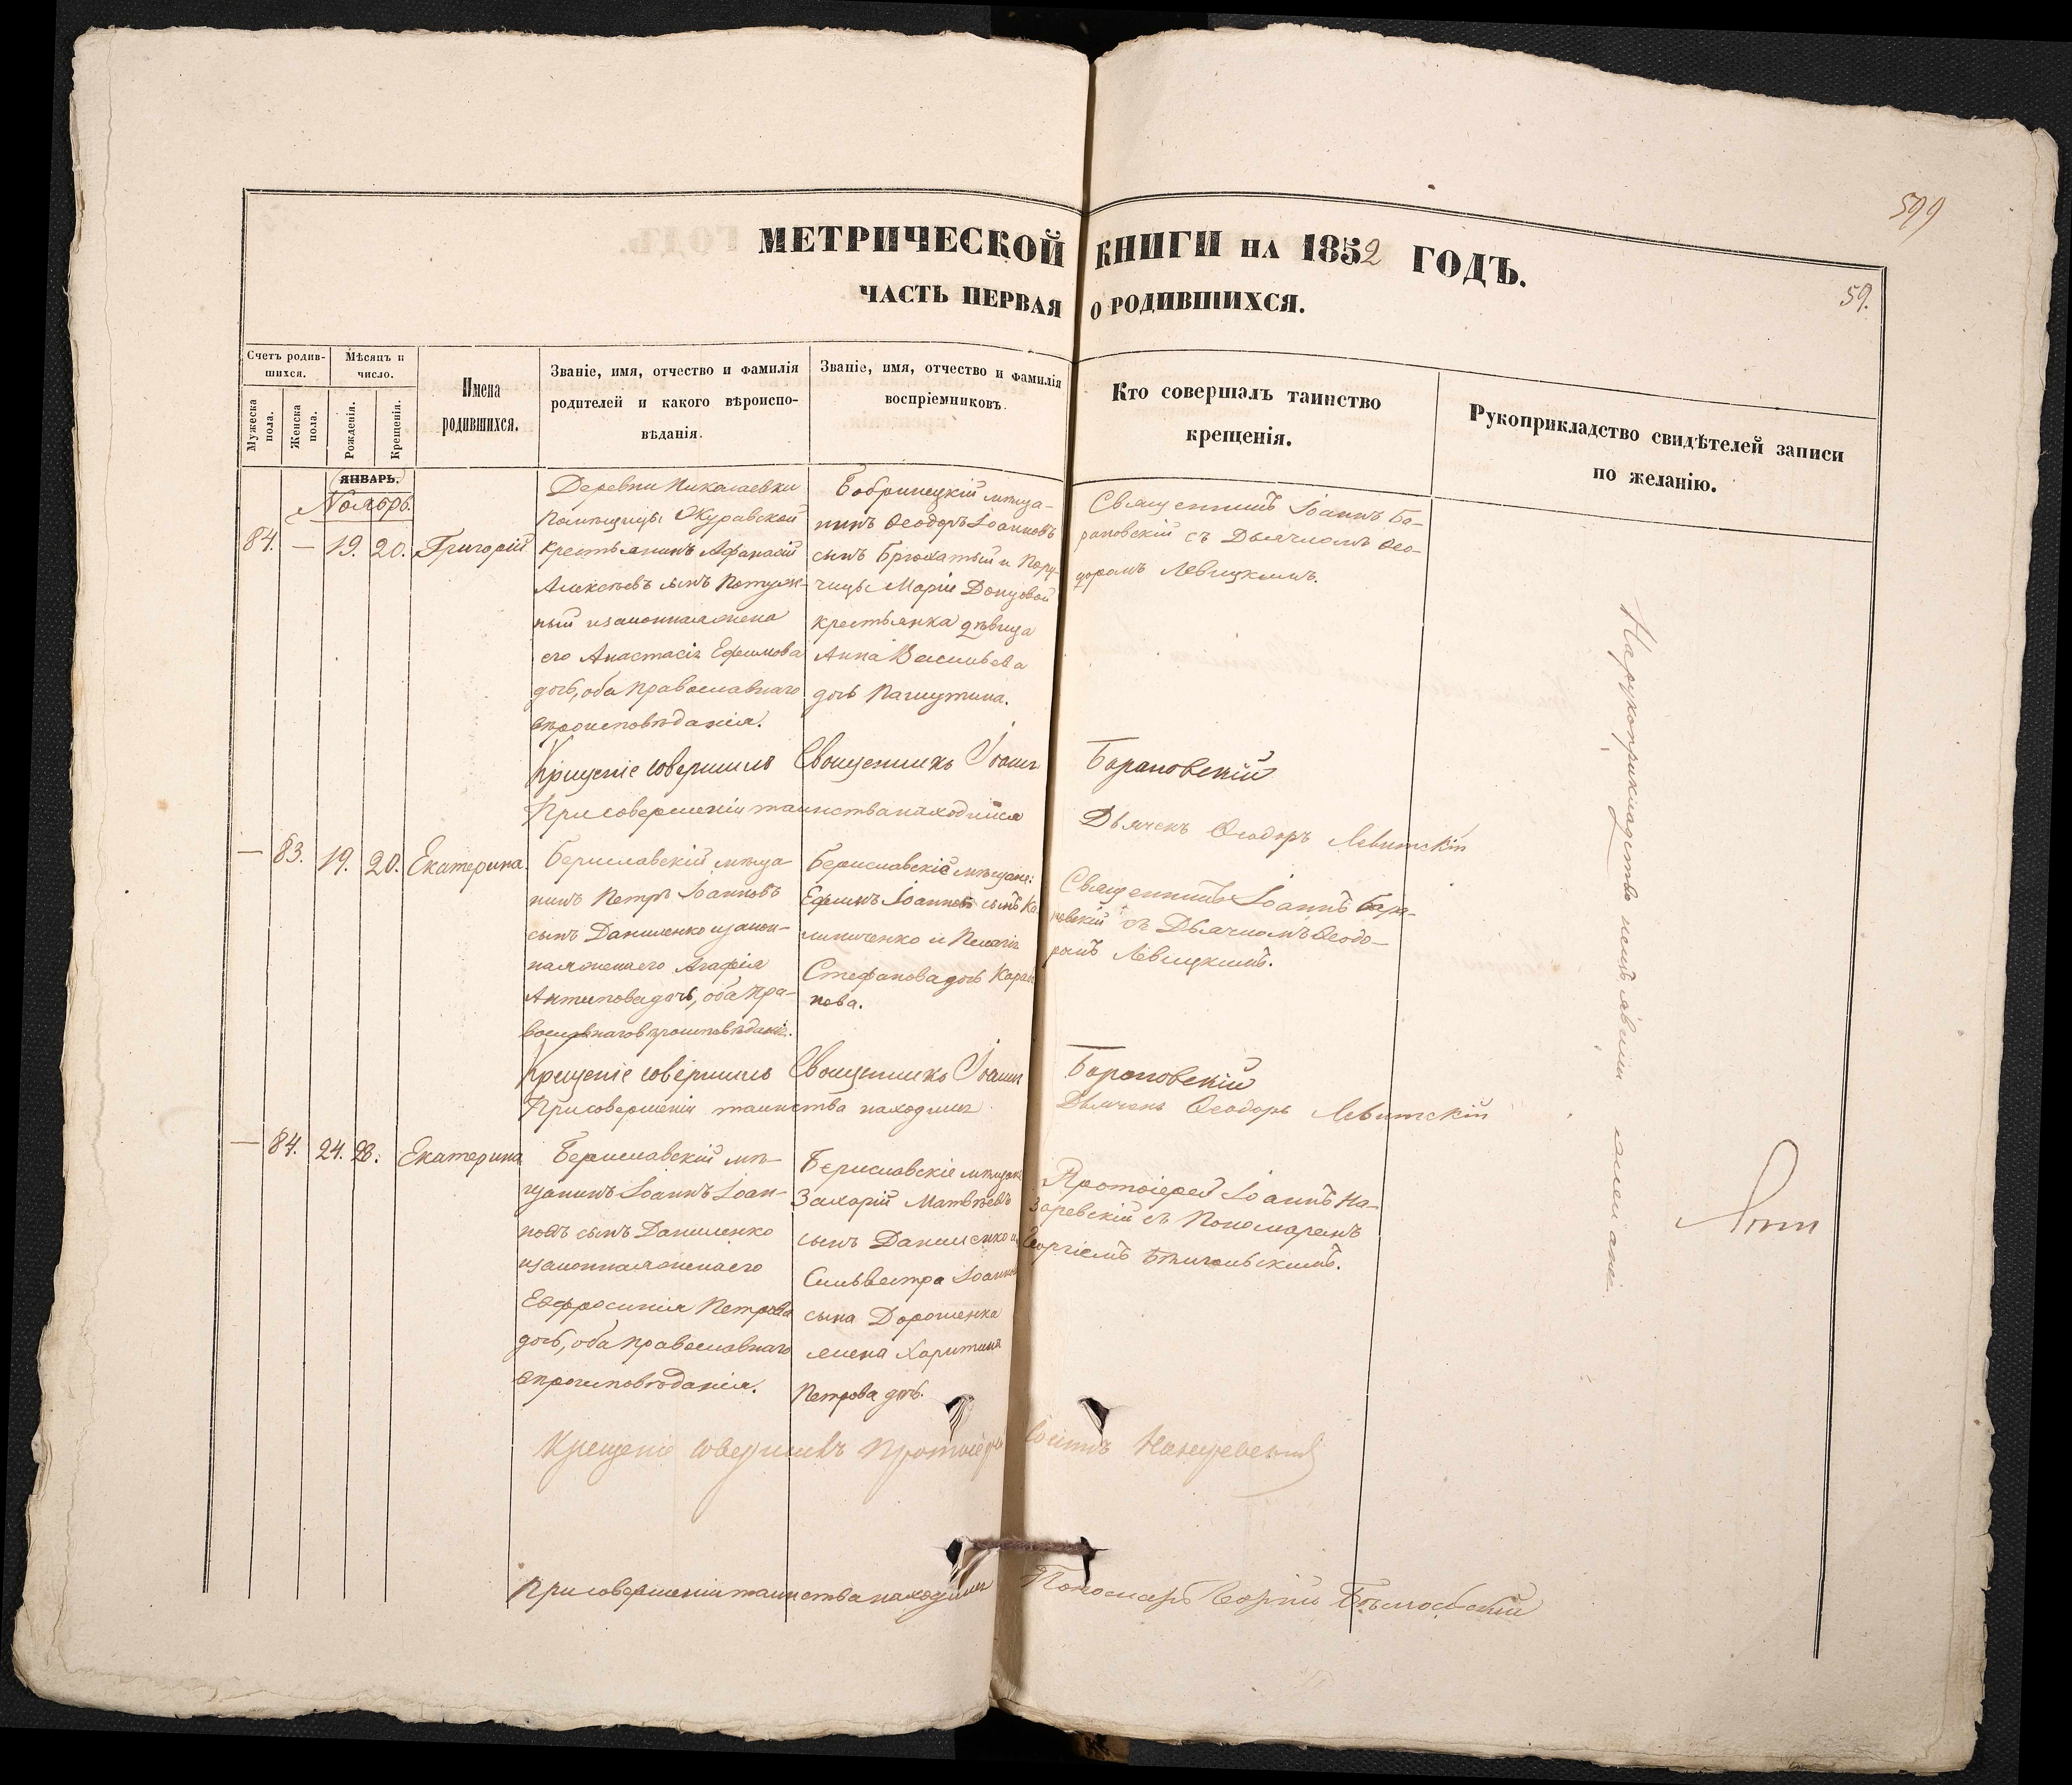 599
МЕТРИЧЕСКОЙ КНИГИ НА 1852 ГОДЪ.
59.
ЧАСТЬ ПЕРВАЯ О РОДИВШИХСЯ.
Счетъ родив-
шихся.
Мужеска
пола.
Женска
пола.
Мѣсяцъ и
число.
Рожденія.
Крещенія.
Имена
родившихся.
Званіе, имя, отчество и фамилія
родителей и какого вѣроиспо-
вѣданія.
Званіе, имя, отчество и фамилія
воспріемниковъ.
Кто совершалъ таинство
крещенія.
Рукоприкладство свидѣтелей записи
по желанію.
ЯНВАРЬ.
Ноябрь.
84. — 19. 20. Григорій
Деревни Николаевки
помѣщицы Журавской
крестьянинъ Афанасій
Алексѣевъ сынъ
законная жена
его Анастасія Ефимова
дочь, оба православнаго
вѣроисповѣданія.
Бобринецкій мѣща-
нинъ Ѳеодоръ Іоанновъ
сынъ Брюхатый и Пору-
чицы Маріи Донцовой
крестьянка дѣвица
Анна Васильева
дочь Пашутина.
Священникъ Іоаннъ Ба-
рановскій съ Дьячкомъ Ѳео-
доромъ Левицкимъ.
Крещеніе совершилъ Священникъ Іоаннъ Барановскій
При совершеніи таинства находился Дьячекъ Ѳеодоръ Левитскій
— 83. 19. 20. Екатерина
Бериславскій мѣща
нинъ Петръ Іоанновъ
сынъ Даниленко и закон-
ная жена его Агафія
Антипова дочь, оба пра-
вославнаго вѣроисповѣданія.
Бериславскіе мѣщане:
Ефимъ Іоанновъ сынъ Ка-
линиченко и Пелагія
Стефанова дочь
нова.
Священникъ Іоаннъ Бара-
новскій съ Дьячкомъ Ѳеодо-
ромъ Левицкимъ.
Крещеніе совершилъ Священникъ Іоаннъ Барановскій
При совершеніи таинства находился Дьячекъ Ѳеодоръ Левитскій
— 84. 24. 28. Екатерина
Бериславскій мѣ-
щанинъ Іоаннъ Іоан-
новъ сынъ Даниленко
и законная жена его
Евфросинія Петрова
дочь, оба православнаго
вѣроисповѣданія.
Бериславскіе мѣщане
Захарій Матвѣевъ
сынъ Даниленко и
Сильвестра Іоаннова
сына Дорошенка
жена Харитина
Петрова дочь.
Протоіерей Іоаннъ На-
заревскій съ Пономаремъ
Георгіемъ
Крещеніе совершилъ Протоіерей Іоаннъ Назаревскій
При совершеніи таинства находился Пономарь Георгій
На рукоприкладство